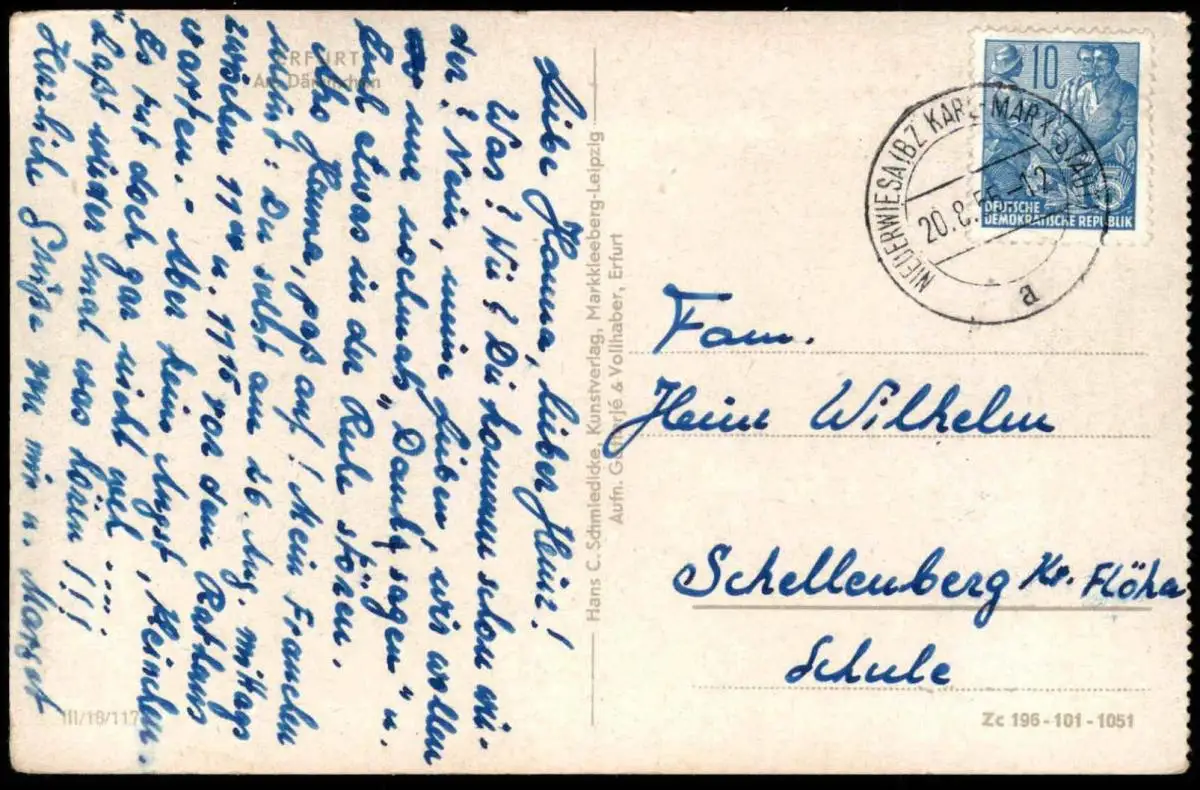 ERFURT
Am Dämmchen
Liebe Hanna, lieber Heinz!
Was? Wie? Die kommen schon wie-
der? Nein, meine Lieben, wir wollen
nur nochmals „Danke sagen" u.
Euch etwas in der Ruhe stören.
Also Hanna, paß auf! Mein Frauchen
meint: Du sollst am 26. Aug. mittags
zwischen 1100 u. 1115 vor dem Rathaus
warten. - Aber keine Angst, Heinchen.
Es tut doch gar nicht weh ....
Laßt wieder mal was hören !!!
Herzliche Grüße von mir u. Margot
III/18/117
Hans C. Schmiedicke, Kunstverlag, Markkleeberg-Leipzig
Aufn. & Vollhaber, Erfurt
10
DEUTSCHE
DEMOKRATISCHE REPUBLIK
NIEDERWIESA (BZ KARL-MARX-STADT)
20.8.55.-12
a
Fam.
Heinz Wilhelm
Schellenberg Kr. Flöha
Schule
Zc 196-101-1051